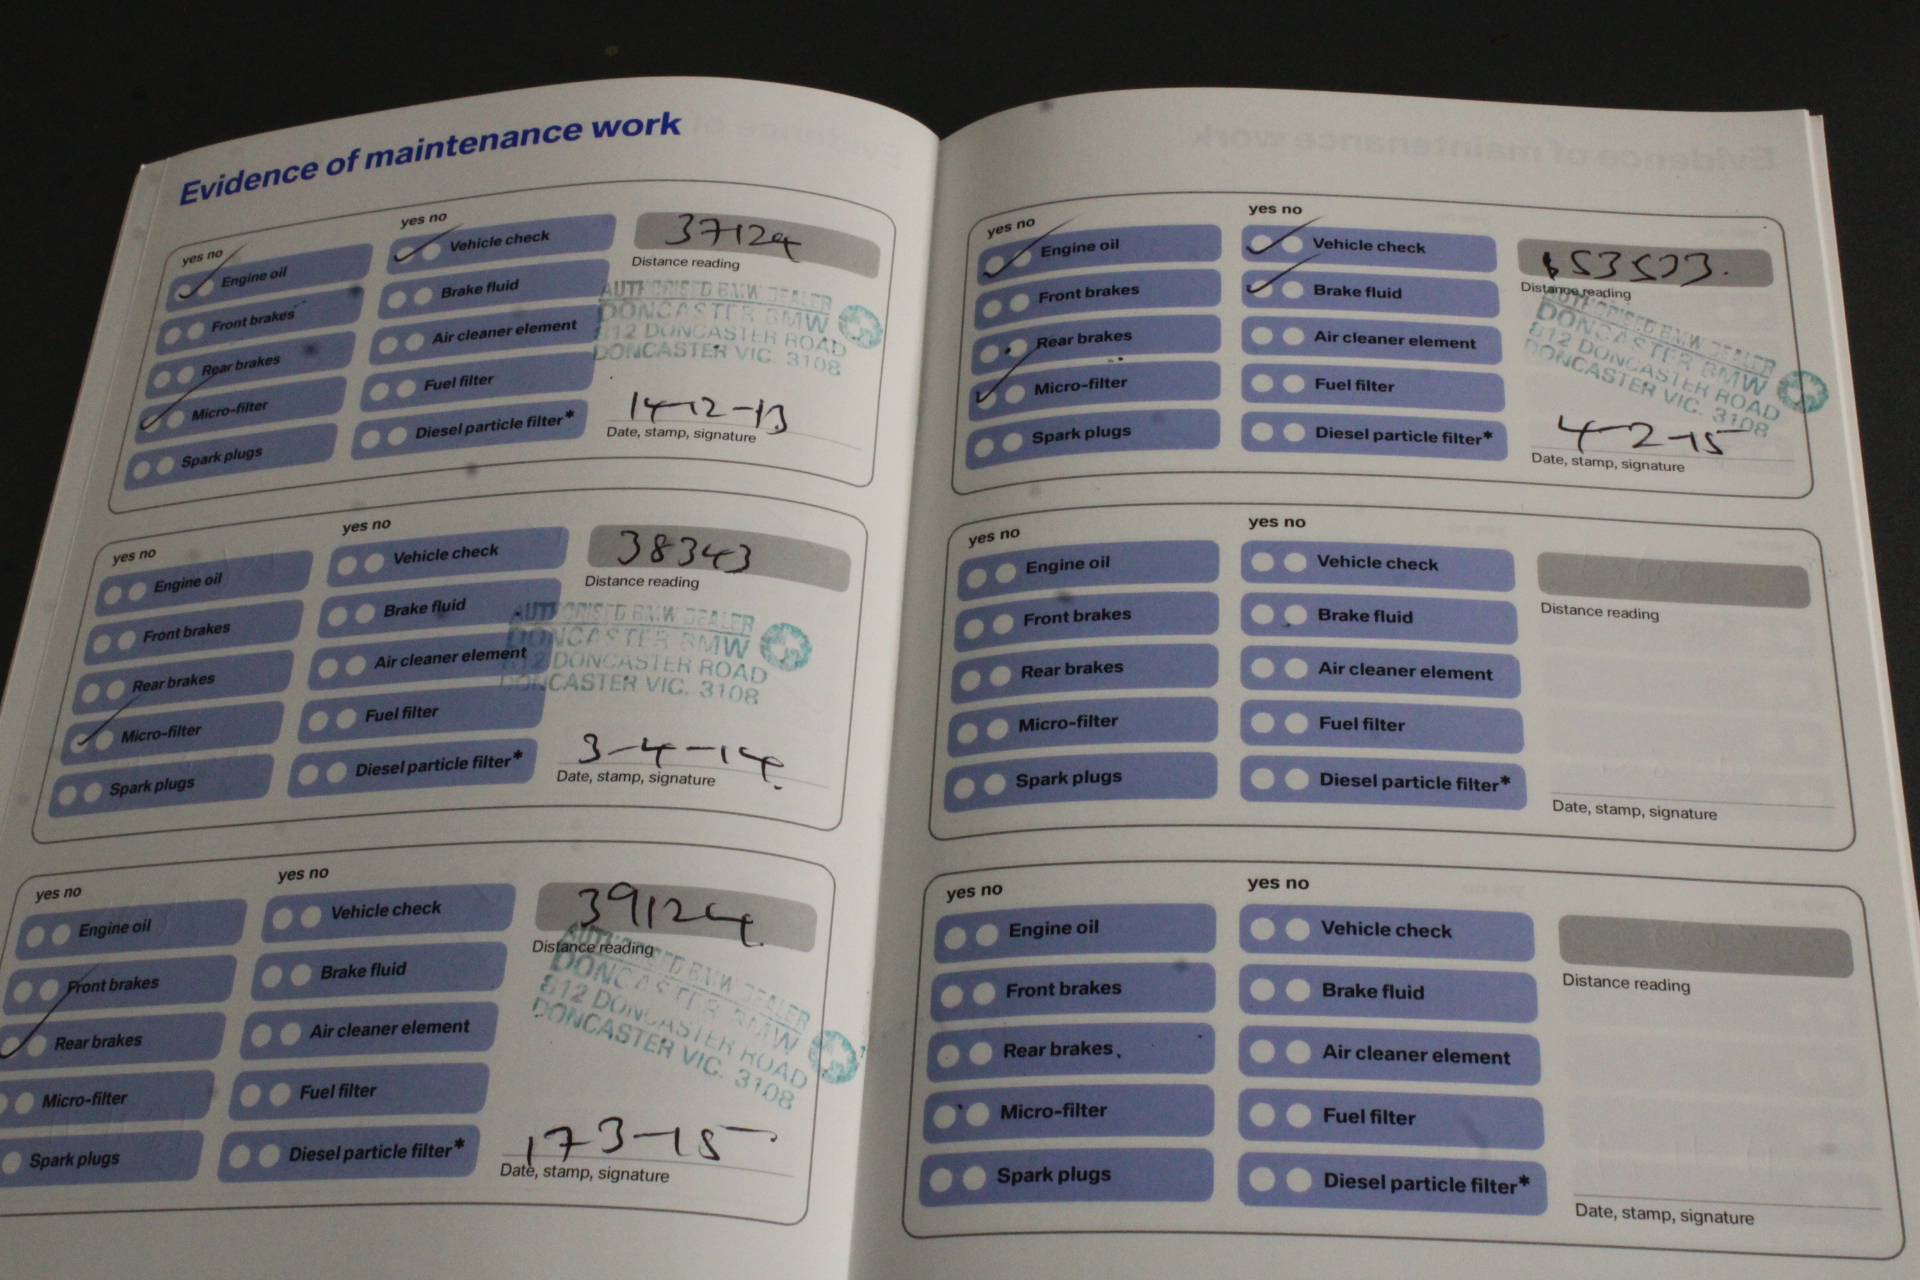 Evidence of maintenance work
yes no
yes no
Engine oil
Vehicle check
37124
Distance reading
Front brakes
Brake fluid
Rear brakes
Air cleaner element
Micro-filter
Fuel filter
Spark plugs
Diesel particle filter*
AUTHORISED BMW DEALER
DONCASTER BMW
812 DONCASTER ROAD
DONCASTER VIC. 3108
14-12-13
Date, stamp, signature
yes no
yes no
Engine oil
Vehicle check
38343
Distance reading
Front brakes
Brake fluid
Rear brakes
Air cleaner element
Micro-filter
Fuel filter
Spark plugs
Diesel particle filter*
AUTHORISED BMW DEALER
DONCASTER BMW
812 DONCASTER ROAD
DONCASTER VIC. 3108
3-4-14
Date, stamp, signature
yes no
yes no
Engine oil
Vehicle check
39124
Distance reading
Front brakes
Brake fluid
Rear brakes
Air cleaner element
Micro-filter
Fuel filter
Spark plugs
Diesel particle filter*
AUTHORISED BMW DEALER
DONCASTER BMW
812 DONCASTER ROAD
DONCASTER VIC. 3108
17-3-15
Date, stamp, signature
yes no
yes no
Engine oil
Vehicle check
Distance reading
Front brakes
Brake fluid
Rear brakes
Air cleaner element
Micro-filter
Fuel filter
Spark plugs
Diesel particle filter*
AUTHORISED BMW DEALER
DONCASTER BMW
812 DONCASTER ROAD
DONCASTER VIC. 3108
4-2-15
Date, stamp, signature
yes no
yes no
Engine oil
Vehicle check
Distance reading
Front brakes
Brake fluid
Rear brakes
Air cleaner element
Micro-filter
Fuel filter
Spark plugs
Diesel particle filter*
Date, stamp, signature
yes no
yes no
Engine oil
Vehicle check
Distance reading
Front brakes
Brake fluid
Rear brakes
Air cleaner element
Micro-filter
Fuel filter
Spark plugs
Diesel particle filter*
Date, stamp, signature